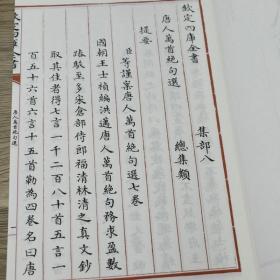 欽定四庫全書
集部八
唐人萬首絶句選
總集類
提要
臣等謹案唐人萬首絶句選七卷
國朝王士禎編洪邁唐人萬首絶句務求盈數
踳駁至多宋倉部侍郎福清林清之真父鈔
取其佳者得七言一千二百八十首五言一
百五十六首六言十五首勒為四卷名曰唐
欽定四庫全書
唐人萬首絶句選
一